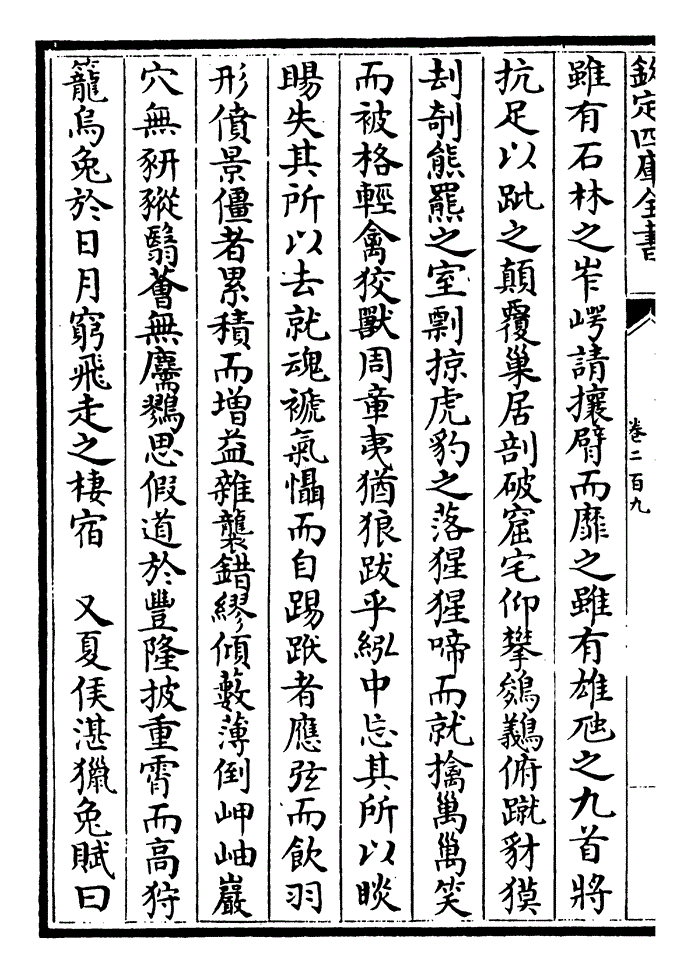 欽定四庫全書
卷二百九
雖有石林之岝崿請攘臂而靡之雖有雄虺之九首將
抗足以跐之顛覆巢居剖破窟宅仰攀鵕鸃俯蹴豺獏
刦剞熊羆之室剽掠虎豹之落猩猩啼而就擒𥝋𥝋笑
而被格輕禽狡獸周章夷猶狼跋乎紭中忘其所以睒
賜失其所以去就魂褫氣懾而自踢跌者應弦而飲羽
形僨景僵者累積而增益雜襲錯繆傾藪薄倒岬岫巖
穴無豜豵翳薈無麢鷚思假道於豐隆披重霄而高狩
籠烏兔於日月窮飛走之棲宿 又夏侯湛獵兔賦曰